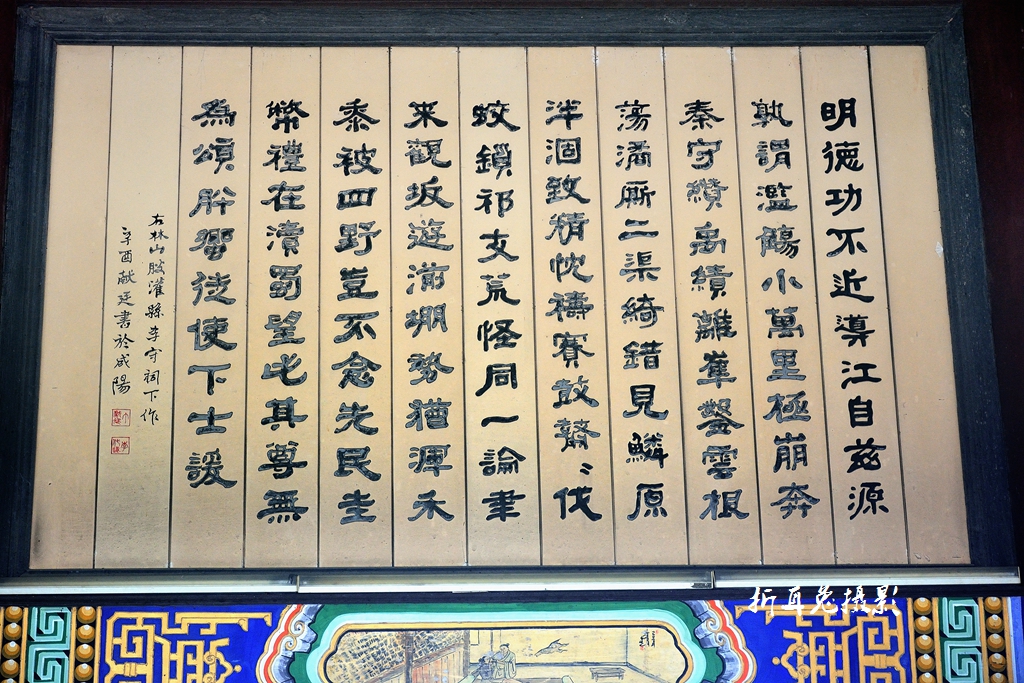 明德功不近導江自茲源
孰謂濫觴小萬里極崩奔
秦守纘禹績離崔鑿雲根
蕩潏廝二渠綺錯見鱗原
泮涸致精忱禱賽鼓鼖〻伐
蛟鎖祁支荒怪同一論聿
来觀坂遊湔堋勢猶渾禾
黍被四野豈不念先民圭
幣禮在瀆蜀望屹其尊無
為頌肸蠁徒使下士諼
右林山腴灌縣李守祠下作
辛酉獻廷書於咸陽
折耳兔摄影